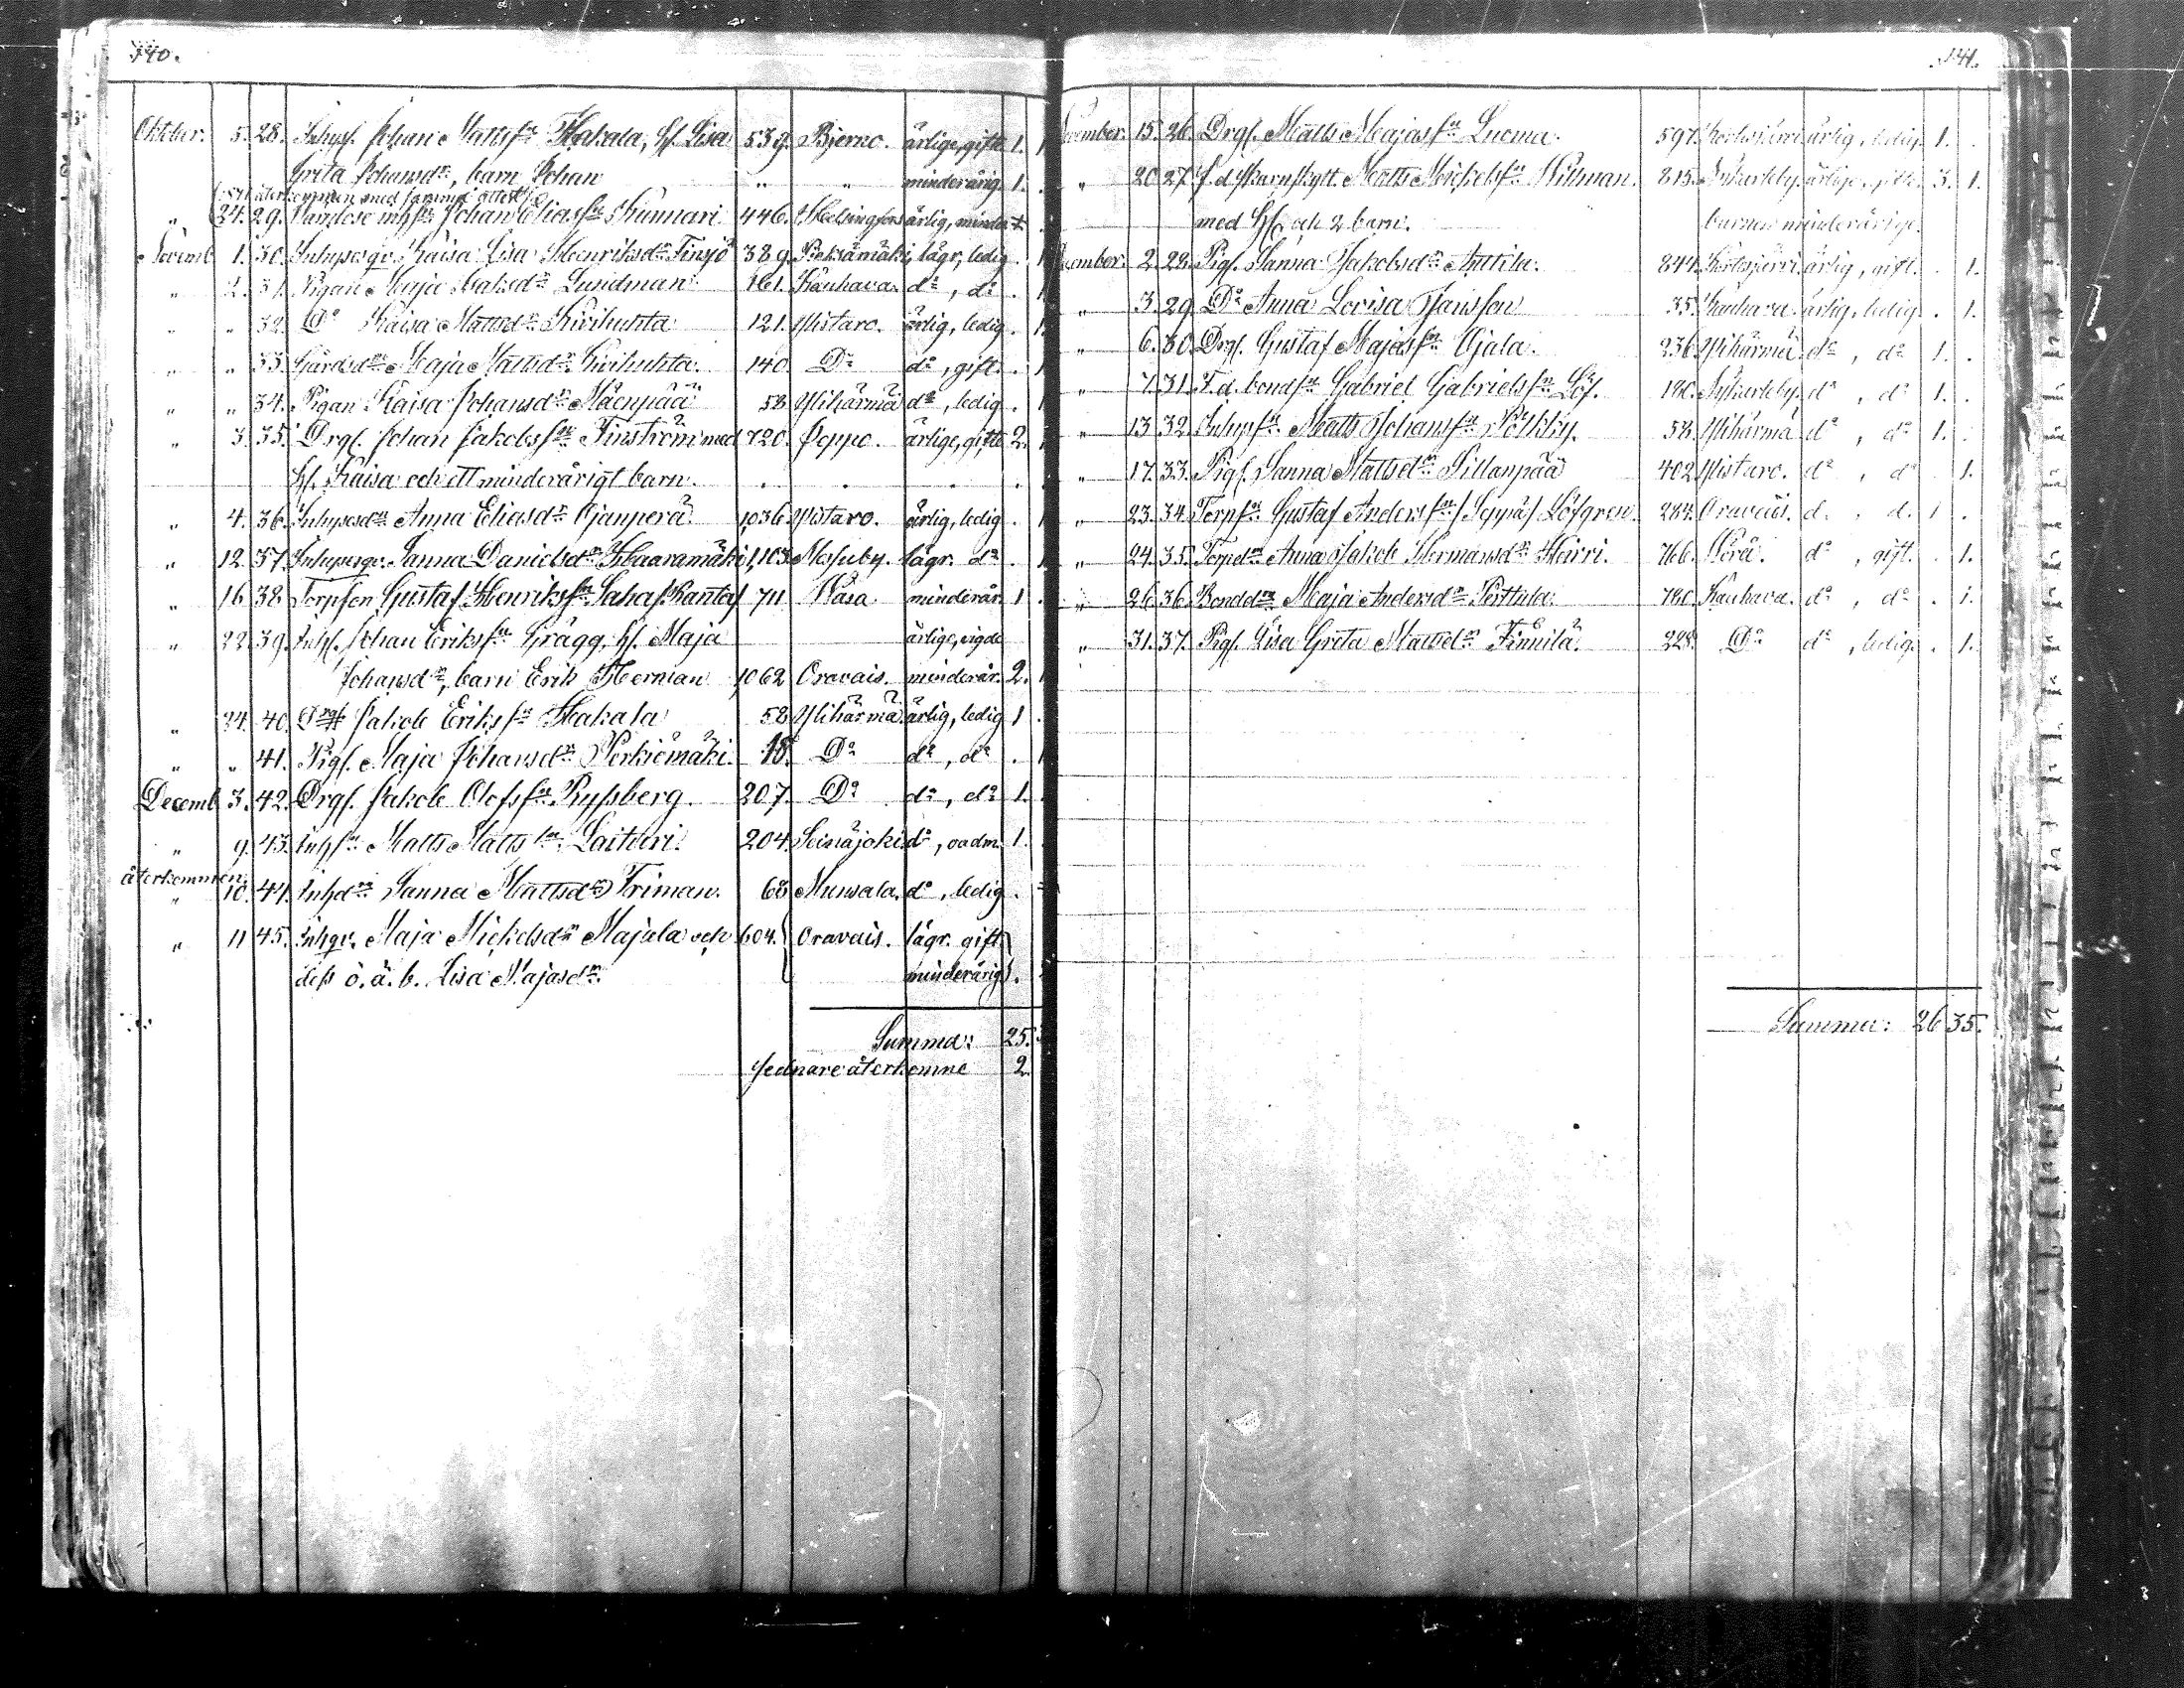 140.
Oktober. 5. 28. Inhysf. Johan Mattsson Hakala, hf. Lisa 539. Bjerno. ärlige, gifte 1. 1
Greta Johansdr, barn Johan " " minderårig. 1.
återkommen med samma attest
" 24. 29. Johan Eliassn Kunnari 446. Helsingfors ärlig, minder
Novemb. 1. 30. Inhysesqv. Kaisa Lisa Henriksdr Finsjö 389. Pieksämäki, lägr, ledig . 1
" 2. 31. Pigan Maja Lundman 161. Kauhava. do, do . 1
" " 32. Do Kaisa Mattsdr Kivihuhta 121. Ylistaro. ärlig, ledig . 1
" " 33. Gårdsdr Maja Mattsdr Kivihuhta 140. Do do, gift. . 1
" " 34. Pigan Kaisa Johansdr Mäenpää 58 Ylihärmä do, ledig . 1
" 3. 35. Drgf. Johan Jakobssn Finström med 720. Jeppo. ärlige, gifte 2. 1
hf. Kaisa och ett minderårigt barn. . . . .
" 4. 36. Inhysesdr Anna Eliasdr Ojanperä 1036. Ylistaro. ärlig, ledig . 1
" 12. 37. Inhysesqv. Sanna Danielsdr Haaramäki 1,103. Mossuby. lägr. do . 1
" 16. 38 Torpson Gustaf Henrikssn Saha/Ranta/ 711 Wasa. minderår. 1 .
" 22. 39. Inhf. Johan Erikssn Grägg, hf. Maja ärlige, vigde
Johansdr, barn Erik Herman 1062 Oravais. minderår. 2. 1
" 24. 40. Drgf Jakob Erikssn Hakala 58 Ylihärmä. ärlig, ledig 1 .
" " 41. Pigf. Maja Johansdr Perkiömäki. 18. Do do, do . 1
Decemb. 3. 42. Drgf. Jakob Olofssn Ryssberg. 207. Do do, do 1. .
" 9. 43. Inhsn Matts Mattssn Laituri. 204. Seinäjoki do, oadm. 1. .
återkommen
" 10. 44. Inhdr Sanna Mattsdr Friman. 68 Munsala. do, ledig .
" 11 45. Inhqv. Maja Mickelsdr Majala och 604. Oravais. lägr. gift
dess o. ä. b. Lisa Majasdr. minderårig .
Summa: 25.
sednare återkomne 2.
141.
November. 15. 26. Drgf. Matts Majassn Luoma. 597. Kortesjärvi ärlig, ledig. 1. .
" 20 27. f. d. skarpskytt. Matts Mickelssn Killman. 815. Nykarleby. ärlige, gifte. 3. 1.
med hf. och 2 barn. barnen minderårige.
December. 2. 28. Pigf. Sanna Jakobsdr Anttila. 844. Kortesjärvi ärlig, gift. . 1.
" 3. 29. Do Anna Lovisa Jansson 35. Kauhava. ärlig, ledig . 1.
" 6. 30. Drgf. Gustaf Majassn Ojala. 236. Ylihärmä. do, do 1. .
" 7. 31. F. d. bondsn Gabriel Gabrielssn Löf. 180. Nykarleby. do, do 1. .
" 13 32 Inhysn Matts Johanssn Pölkky. 58. Ylihärmä do, do 1. .
" 17. 33. Pigf. Sanna Mattsdr Sillanpää 402 Ylistaro. do, do . 1.
" 23. 34. Torpsn Gustaf Anderssn /Seppä/ Löfgren. 284. Oravais. d., d. 1 .
" 24. 35. Torpdr Anna Jakob Hermansdr Heirri. 766. Wörå. do, gift. . 1.
" 26 36. Bonddr Maja Andersdr Penttula. 780. Kauhava. do, do . 1.
" 31. 37. Pigf. Lisa Greta Mattsdr Finnilä. 228. Do do, ledig. . 1.
Summa: 26 35.